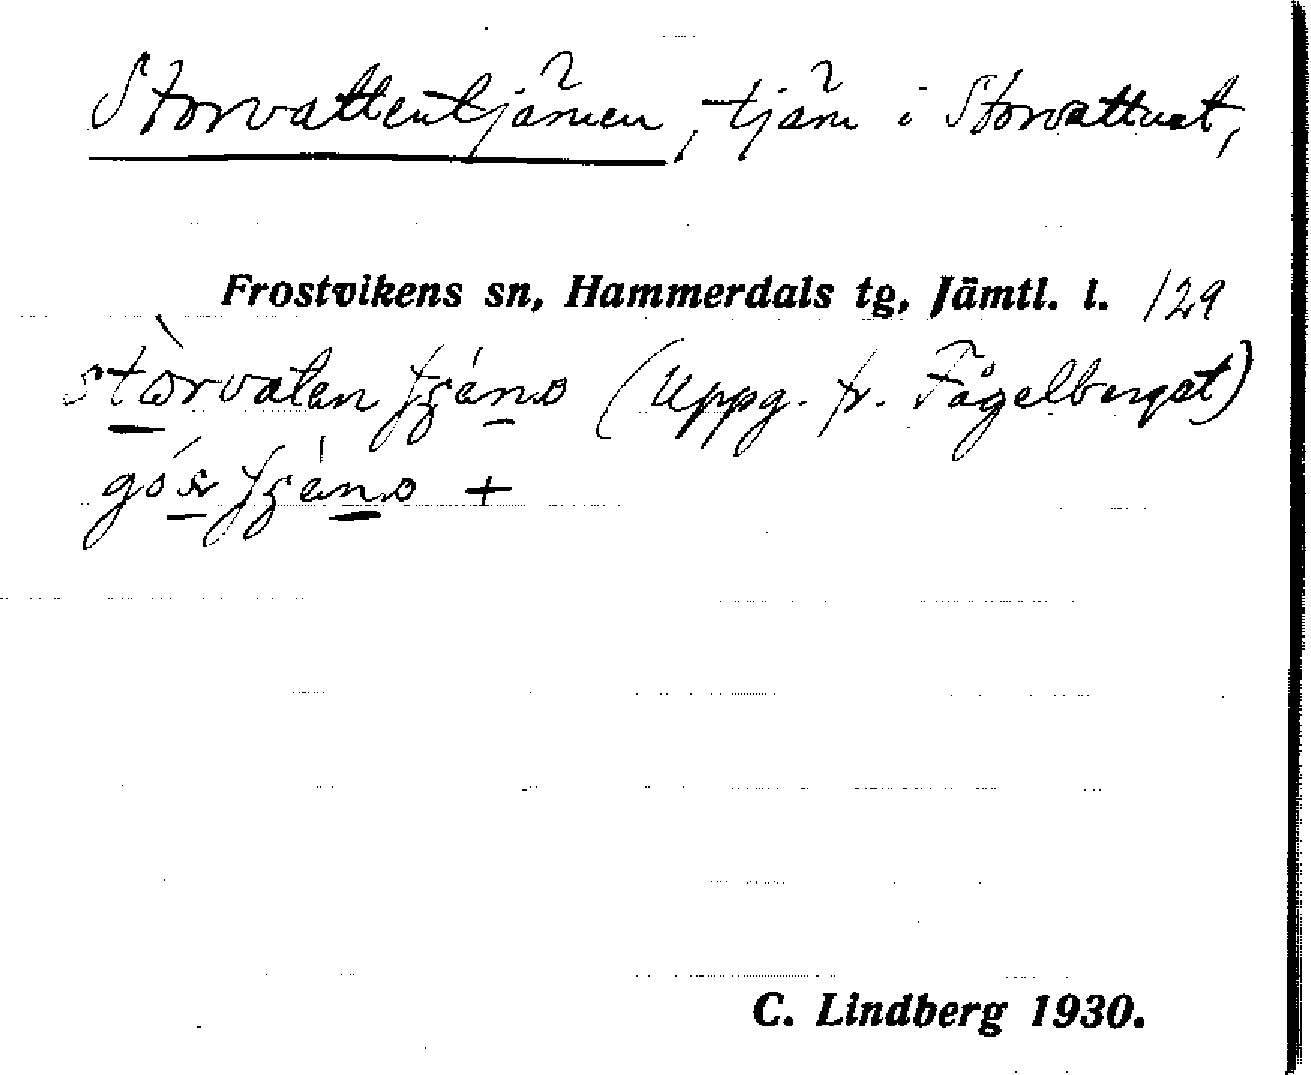 Storvattentjärnen, tjärn i Storvattnet,
Frostvikens sn, Hammerdals tg, Jämtl. l. 129
(Uppg. fr. Fågelberget)
+
C. Lindberg 1930.